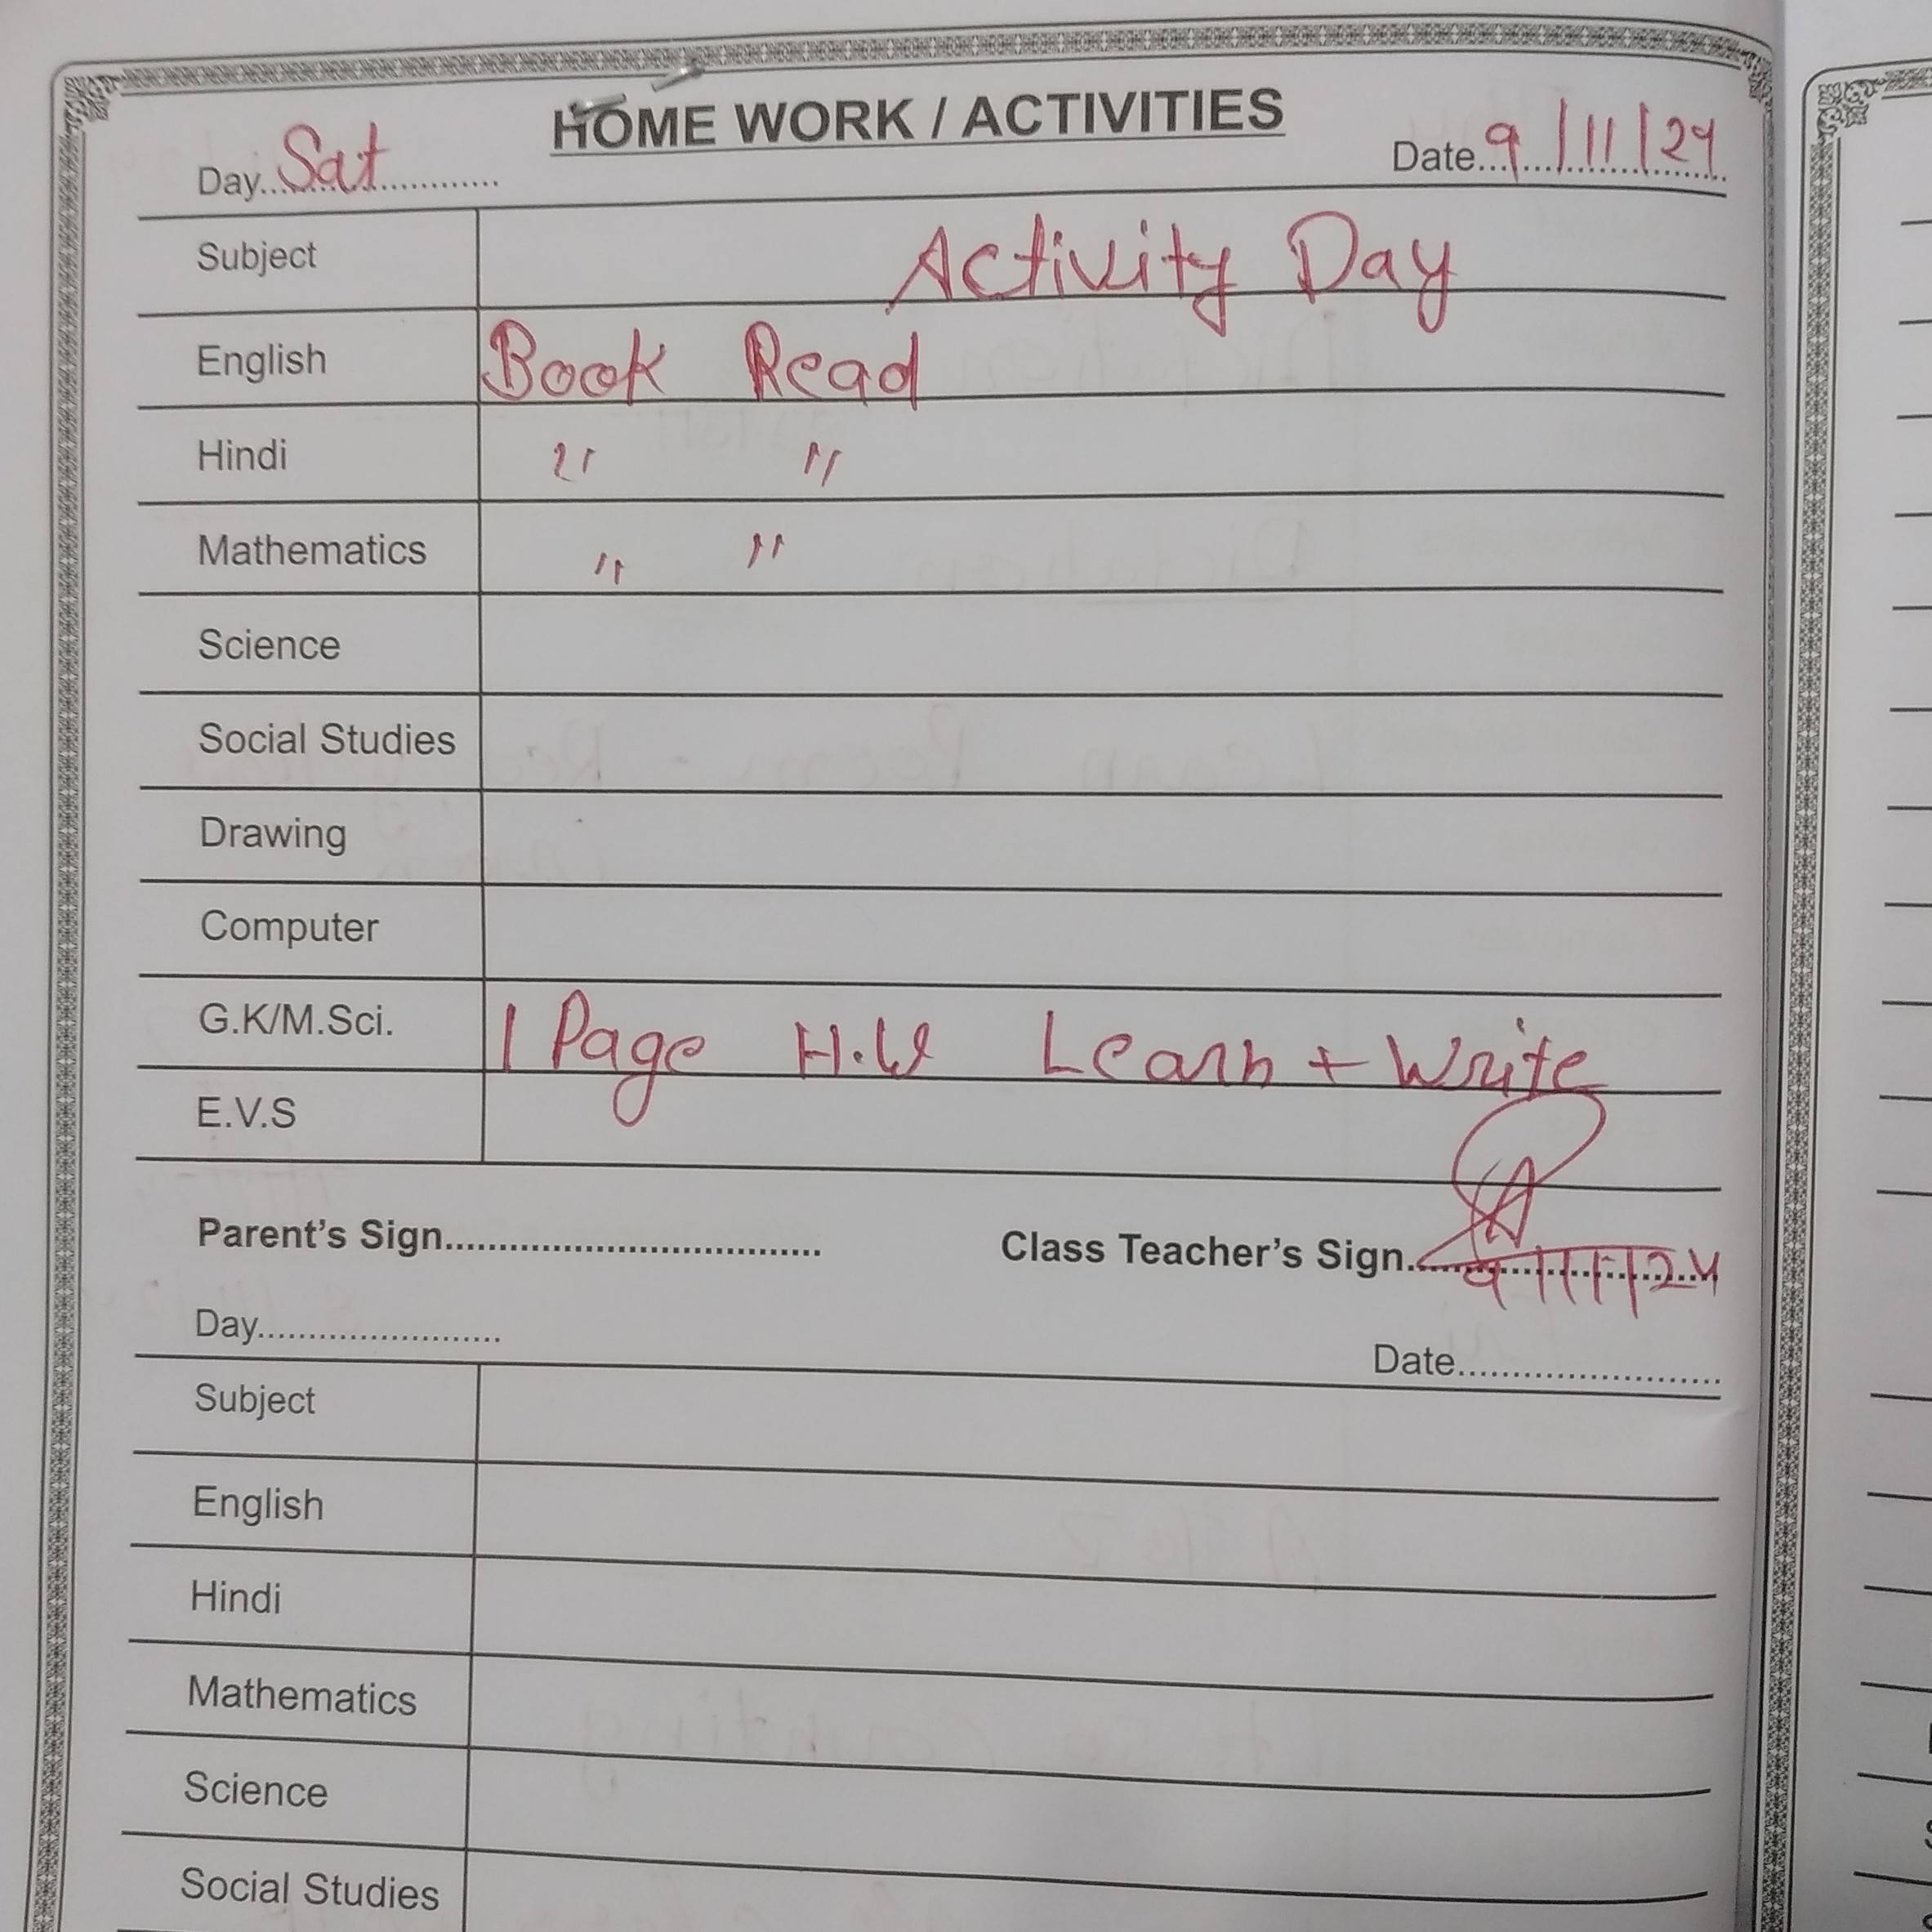 HOME WORK / ACTIVITIES
Day..Sat............ Date..9/11/24
Subject Activity Day
English Book Read
Hindi " "
Mathematics " "
Science
Social Studies
Drawing
Computer
G.K/M.Sci. 1 Page H.W Learn + Write
E.V.S
Parent's Sign................................... Class Teacher's Sign..............................
9/11/24
Day........................
Date.........................
Subject
English
Hindi
Mathematics
Science
Social Studies